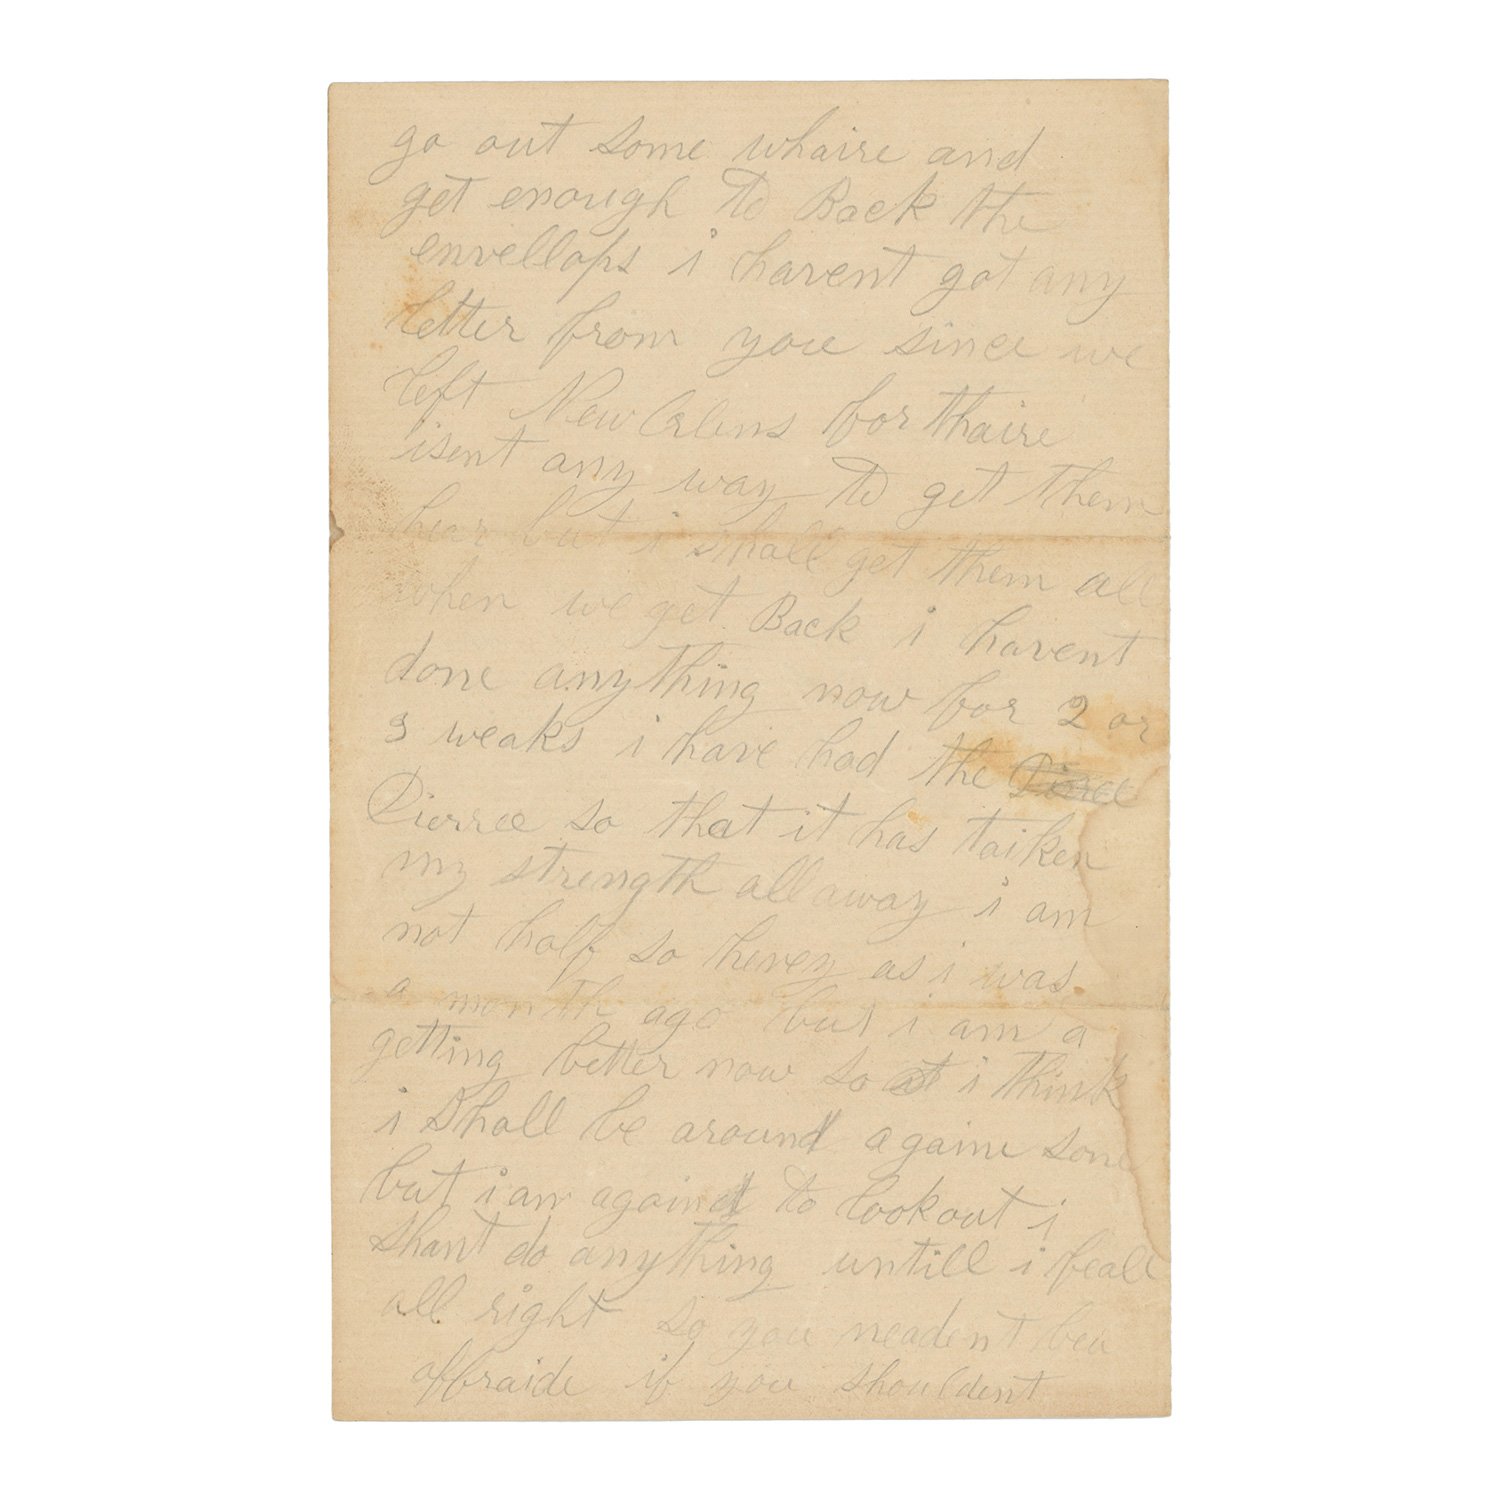 go out some whaire and
get enough to Back the
envellops i havent got any
letter from you since we
left New Orlens for thaire
isent any way to get them
hear but i shall get them all
when we get Back i havent
done anything now for 2 or
3 weaks i have had the
Dierree so that it has taiken
my strength all away i am
not half so hevey as i was
a month ago but i am a
getting better now so i think
i Shall be around againe sone
but i am to lookout i
shant do anything untill i be all
all right so you neadent bea
affraide if you shouldent